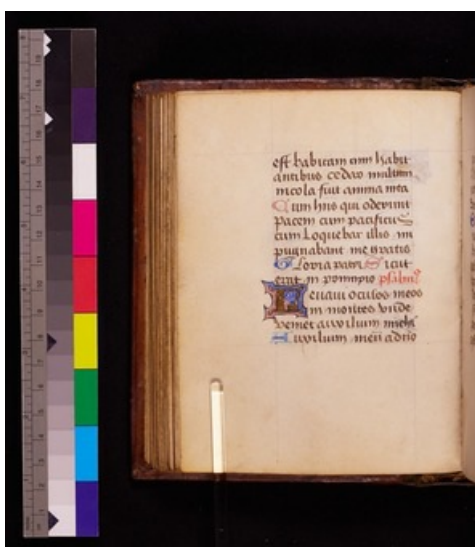 est habitam cum habit
antibus cedar multum
incola fuit anima mea
Cum hiis qui oderunt
pacem eram pacificus
cum loquebar illis im
pugnabant me gratis
Gloria patri Sicut
erat in principio psalmus
Levavi oculos meos
in montes unde
veniet auxilium michi
Auxilium meum a dno